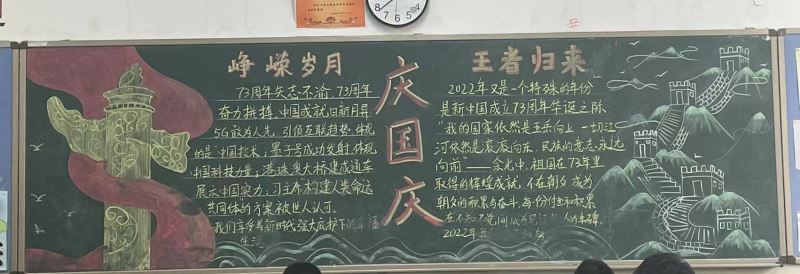 峥嵘岁月
73周年矢志不渝,73周年
奋力拼搏,中国成就日新月异
5G敢为人先,引领互联趋势,体现
的是"中国技术";墨子号成功发射,体现
中国科技力量;港珠澳大桥建成通车
展示中国实力,习主席构建人类命运
共同体的方案被世人认可。
我们享受着新时代强大庇护下的幸福
生活
庆国庆
王者归来
2022年又是一个特殊的年份
是新中国成立73周年华诞之际
"我的国家依然是五岳向上,一切江
河依然是滚滚向东,民族的意志永远
向前"——余光中,祖国在73年里
取得的辉煌成就,不在朝夕,成为
朝夕的积累与奋斗,每份付出和积累
在不知不觉间成为
人的丰碑,
2022年